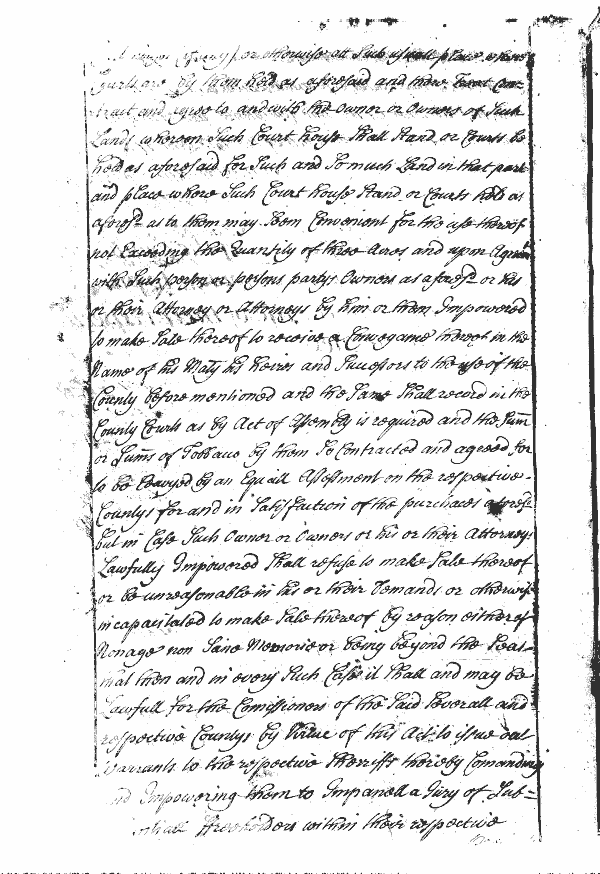 or otherwise att Such usuall place where
Courts are by them held as aforesaid and there Treat Con=
tract and agree to and with the Owner or Owners of Such
Lands whereon Such Court house Shall Stand or Courts be
held as aforesaid for Such and So much Land in that part
and place where Such Court house Stand or Courts held as
aforesd. as to them may Seem Convenient for the use thereof
not Exceeding the Quantity of three Acres and upon Agreemt
with Such person or persons partys Owners as aforesd. or his
or their Attorney or Attorneys by him or them Impowered
to make Sale thereof to receive a Conveyance thereof in the
Name of his Maty his heires and Successors to the use of the
County before mentioned and the Same Shall record in the
County Courts as by Act of Assembly is required and the Sum̄
or Sum̄s of Tobbacco by them So Contracted and agreed for
to be Leavyed by an Equall Assessment on the respective
Countys for and in Satisfaction of the purchases aforesd.
but in Case Such Owner or Owners or his or their Attorneys
Lawfully Impowered Shall refuse to make Sale thereof
or be unreasonable in his or their Demands or otherwise
incapacitated to make Sale thereof by reason either of
Nonage non Sane Memorie or being beyond the Seas
that then and in every Such Case it Shall and may be
Lawfull for the Comissioners of the Said Severall and
respective Countys by Virtue of this Act to issue out
Warrants to the respective Sherriffs thereby Comanding
and Impowering them to Impanell a Jury of Sub=
stantiall freeholders within their respective